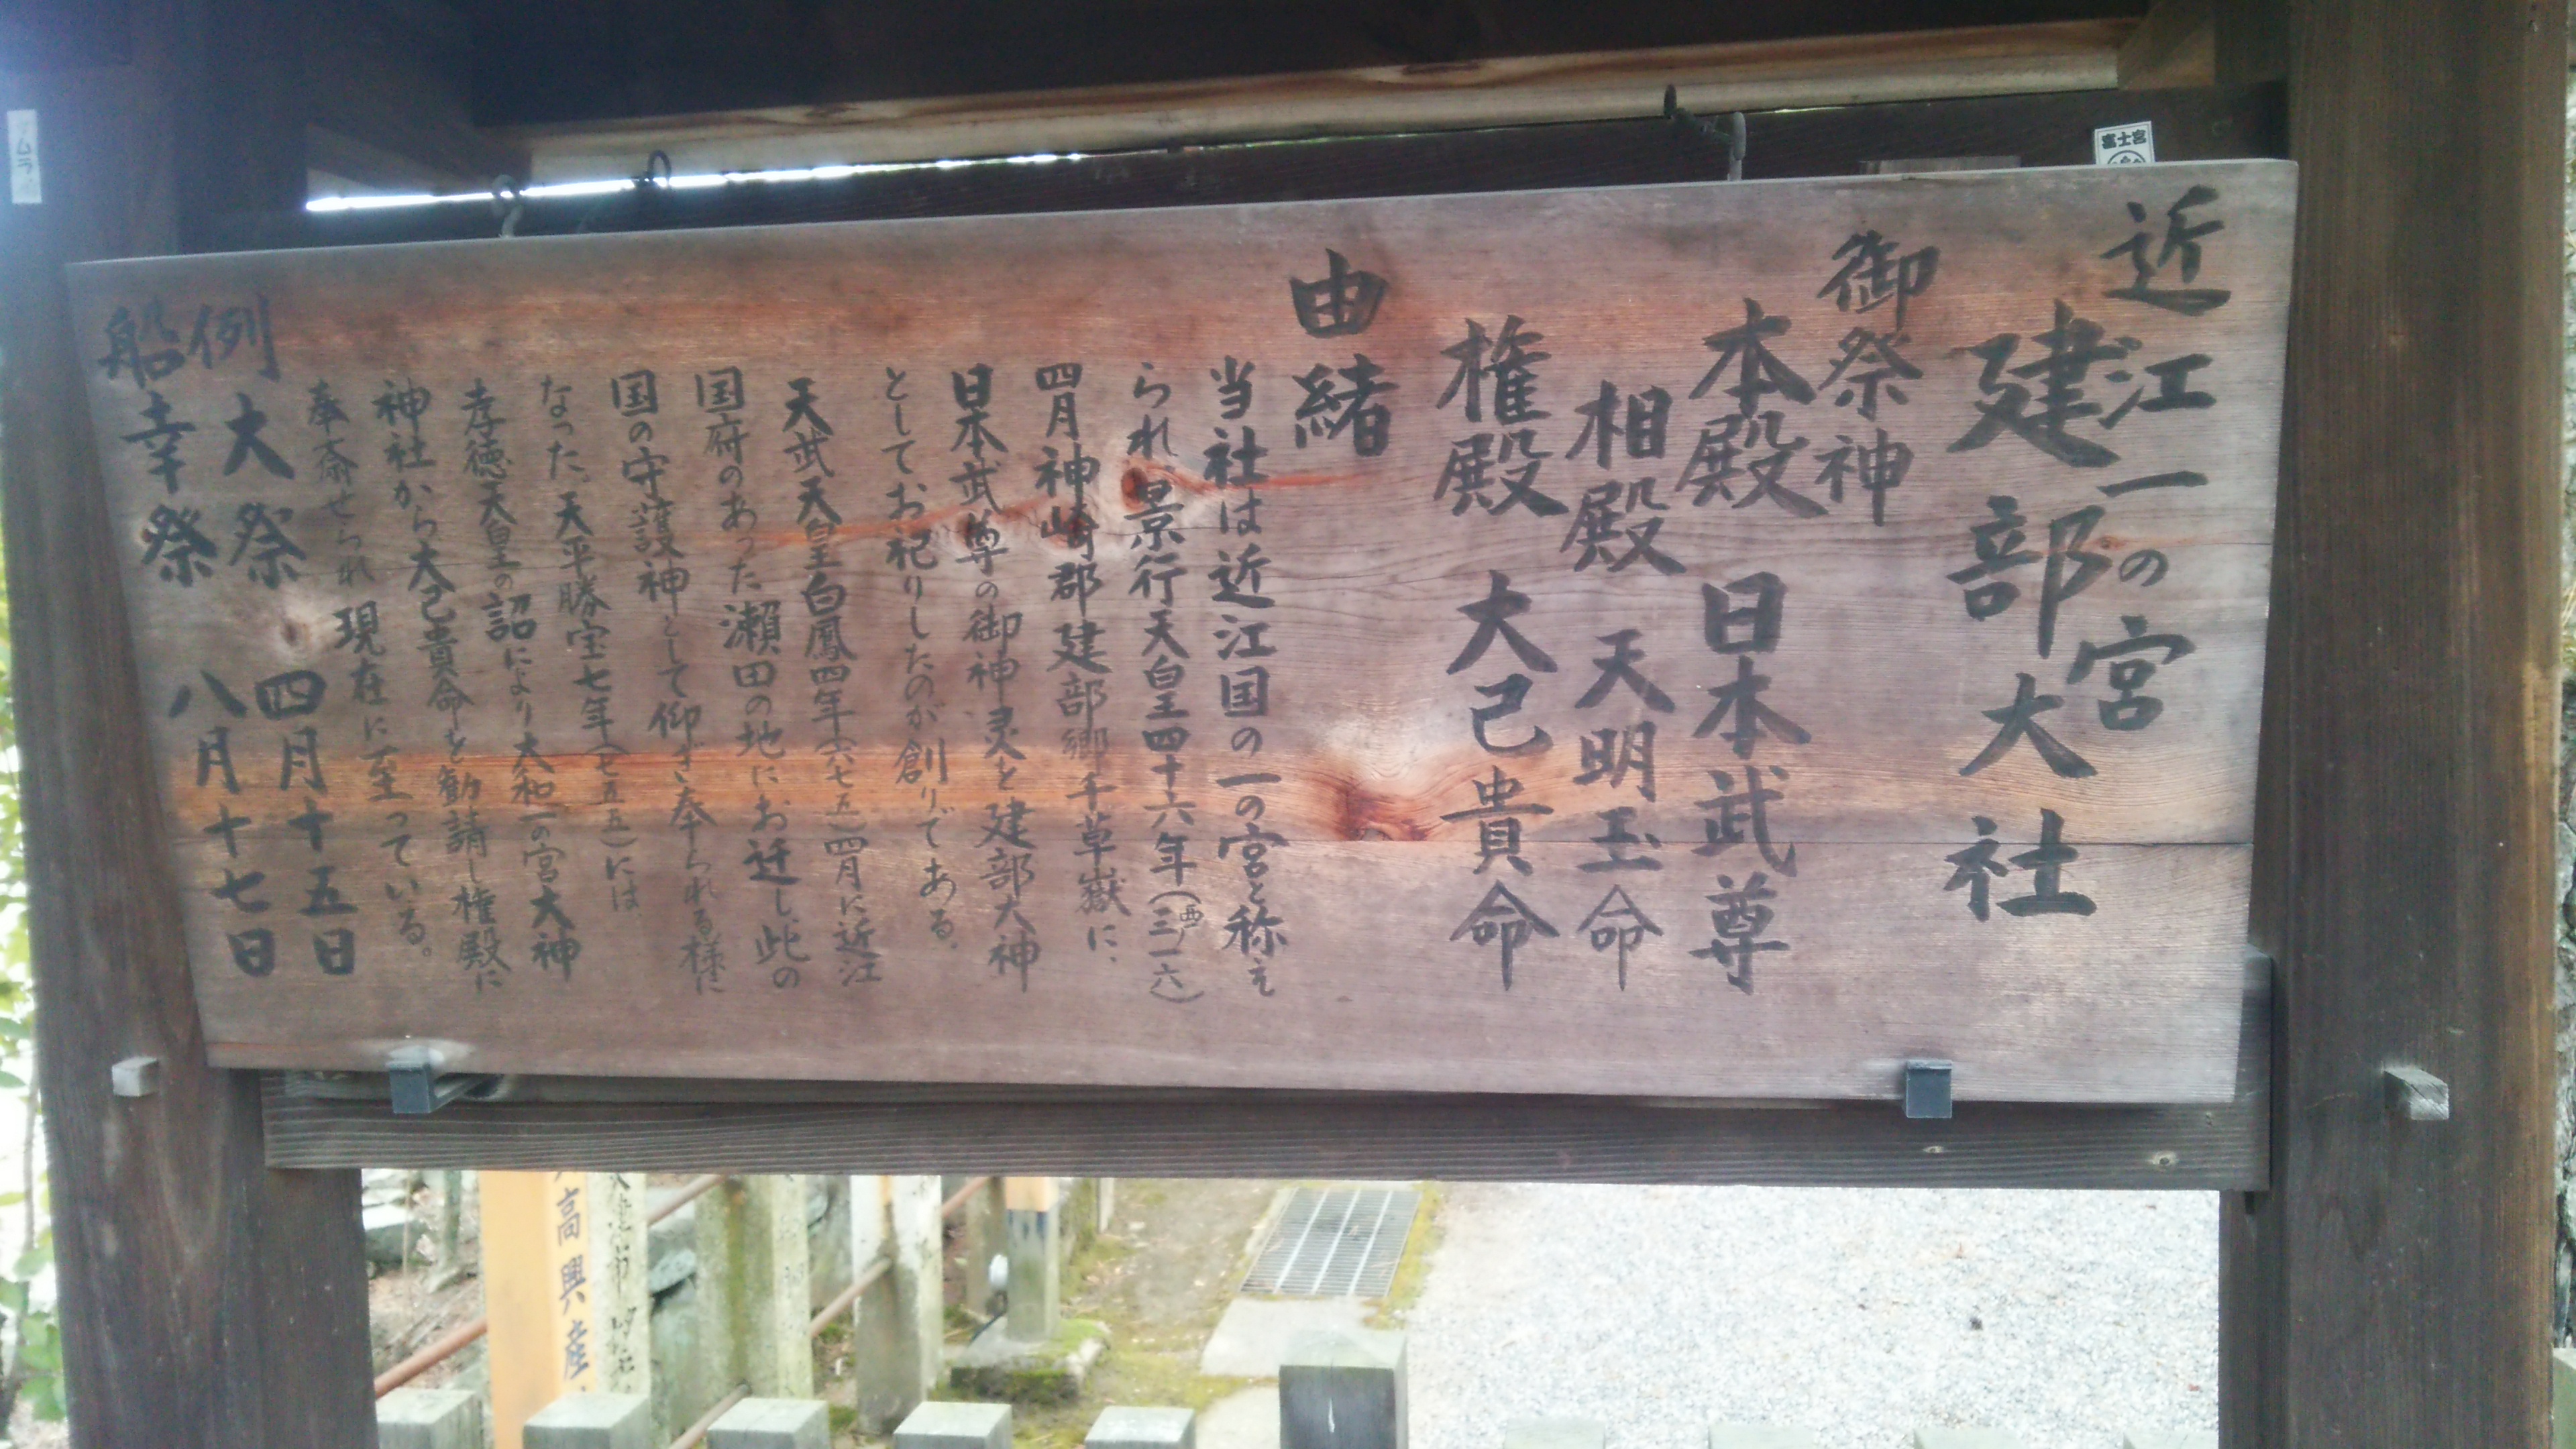 近江一の宮
建部大社
御祭神
本殿 日本武尊
相殿 天明玉命
権殿 大己貴命
由緒
当社は近江国の一の宮と称え
られ、景行天皇四十六年(西三一六)
四月神崎郡建部郷千草嶽に、
日本武尊の御神灵を建部大神
としてお祀りしたのが創りである。
天武天皇白鳳四年(六七五)四月に近江
国府のあった瀬田の地にお迁し、此の
国の守護神として仰ぎ奉られる様に
なった。天平勝宝七年(七五五)には、
孝徳天皇の詔により大和一の宮大神
神社から大己貴命を勧請し権殿に
奉斎せられ現在に至っている。
例大祭 四月十五日
船幸祭 八月十七日
富士宮
高興産